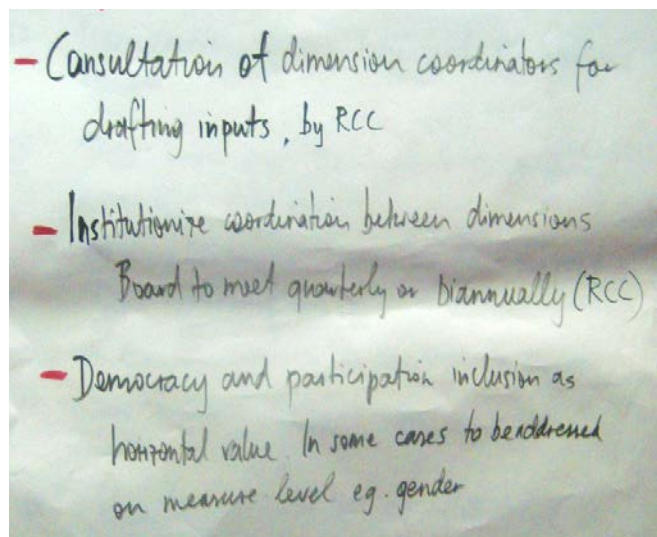 - Consultation of dimension coordinators for
drafting inputs, by RCC
- Institutionize coordination between dimensions
Board to meet quarterly or biannually (RCC)
- Democracy and participation inclusion as
horizontal value. In some cases to be addressed
on measure level eg. gender